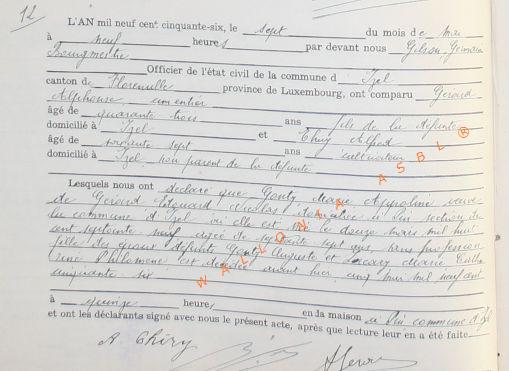 12
L'AN mil neuf cent cinquante-six, le sept du mois de mai
à neuf heures par devant nous Gilson Germain
Bourgmestre
Officier de l'état civil de la commune d'Izel
canton de Florenville province de Luxembourg, ont comparu Gérard
Alphonse, rentier
âgé de quarante trois ans fils de la défunte
domicilié à Izel et Thiry Alfred
âgé de soixante sept ans cultivateur
domicilié à Izel non parent de la défunte
Lesquels nous ont déclaré que Marie Appoline veuve
de Gérard Edouard Nicolas domiciliée à section de
la commune d'Izel où elle est née le douze mars mil huit
cent septante neuf âgée de septante sept ans, sans profession
fille des époux défunts Auguste et Marie
Philomène est décédée avant hier cinq mai mil neuf cent
cinquante six
à heures, en la maison commune d'Izel
et ont les déclarants signé avec nous le présent acte, après que lecture leur en a été faite
A Thiry
WALLONIA ASBL®